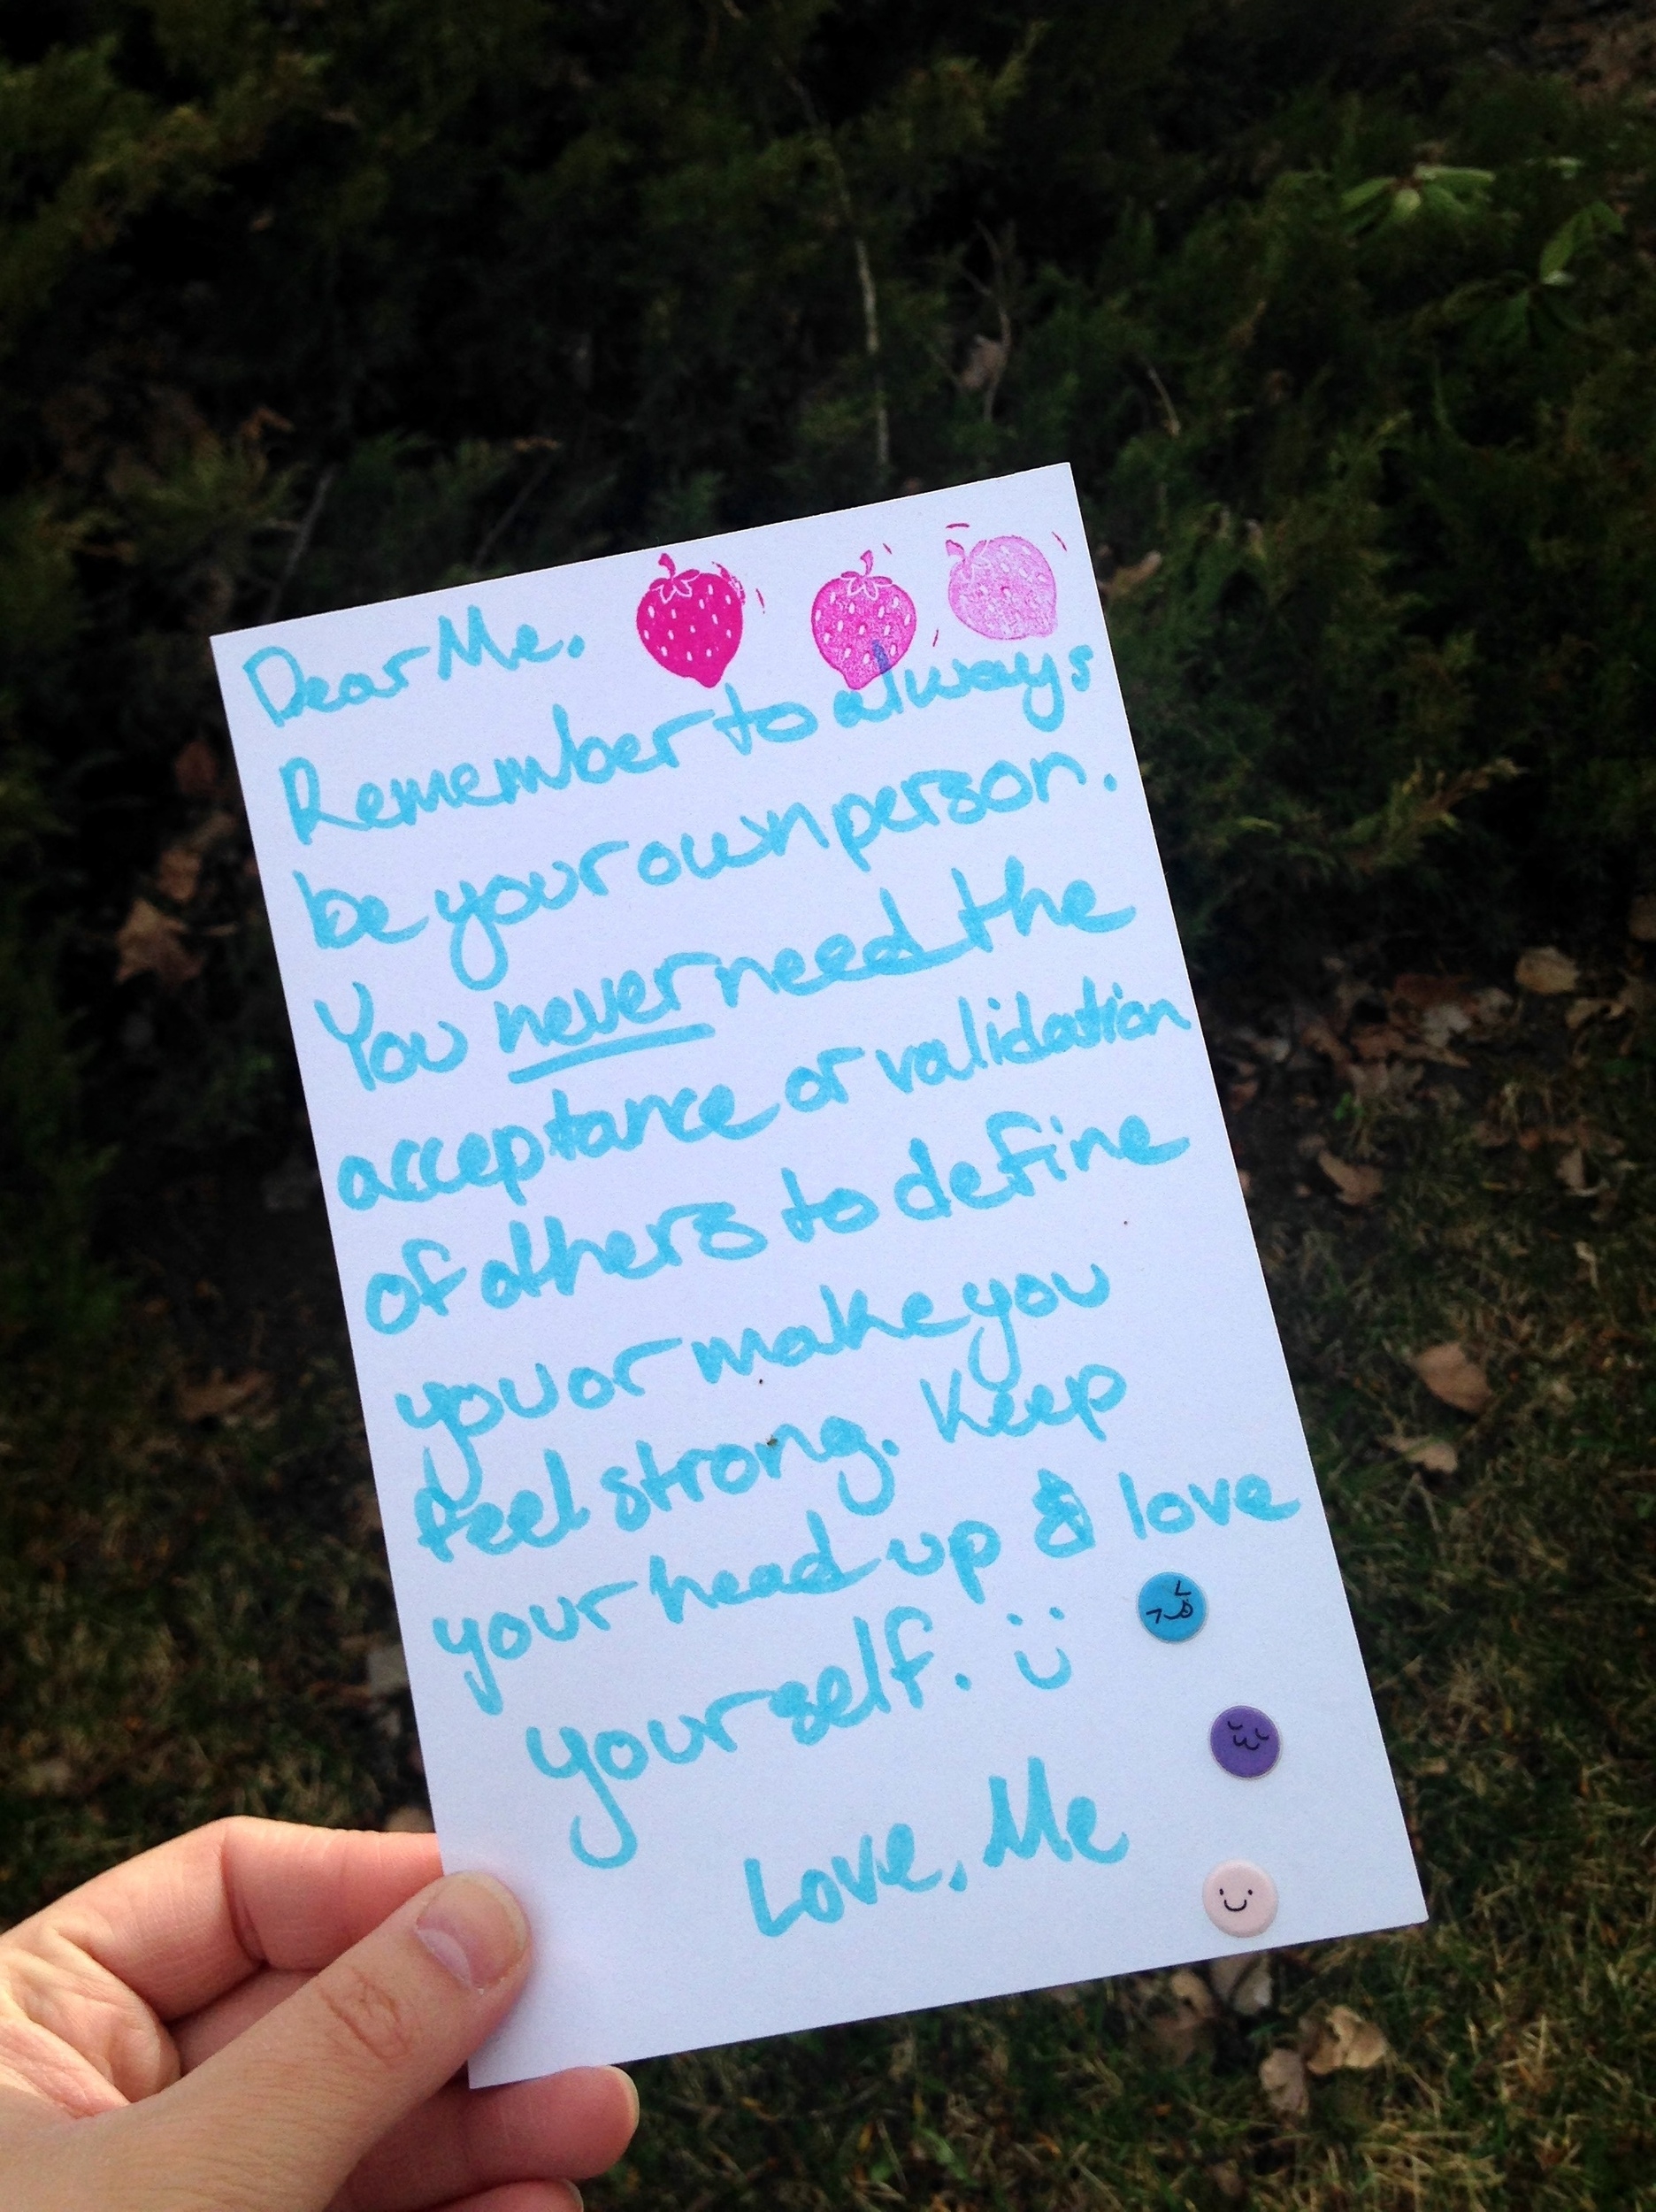 Dear Me.
Remember to always
be your own person.
You never need the
acceptance or validation
of others to define
you or make you
feel strong. Keep
your head up & love
yourself. :)
Love, Me